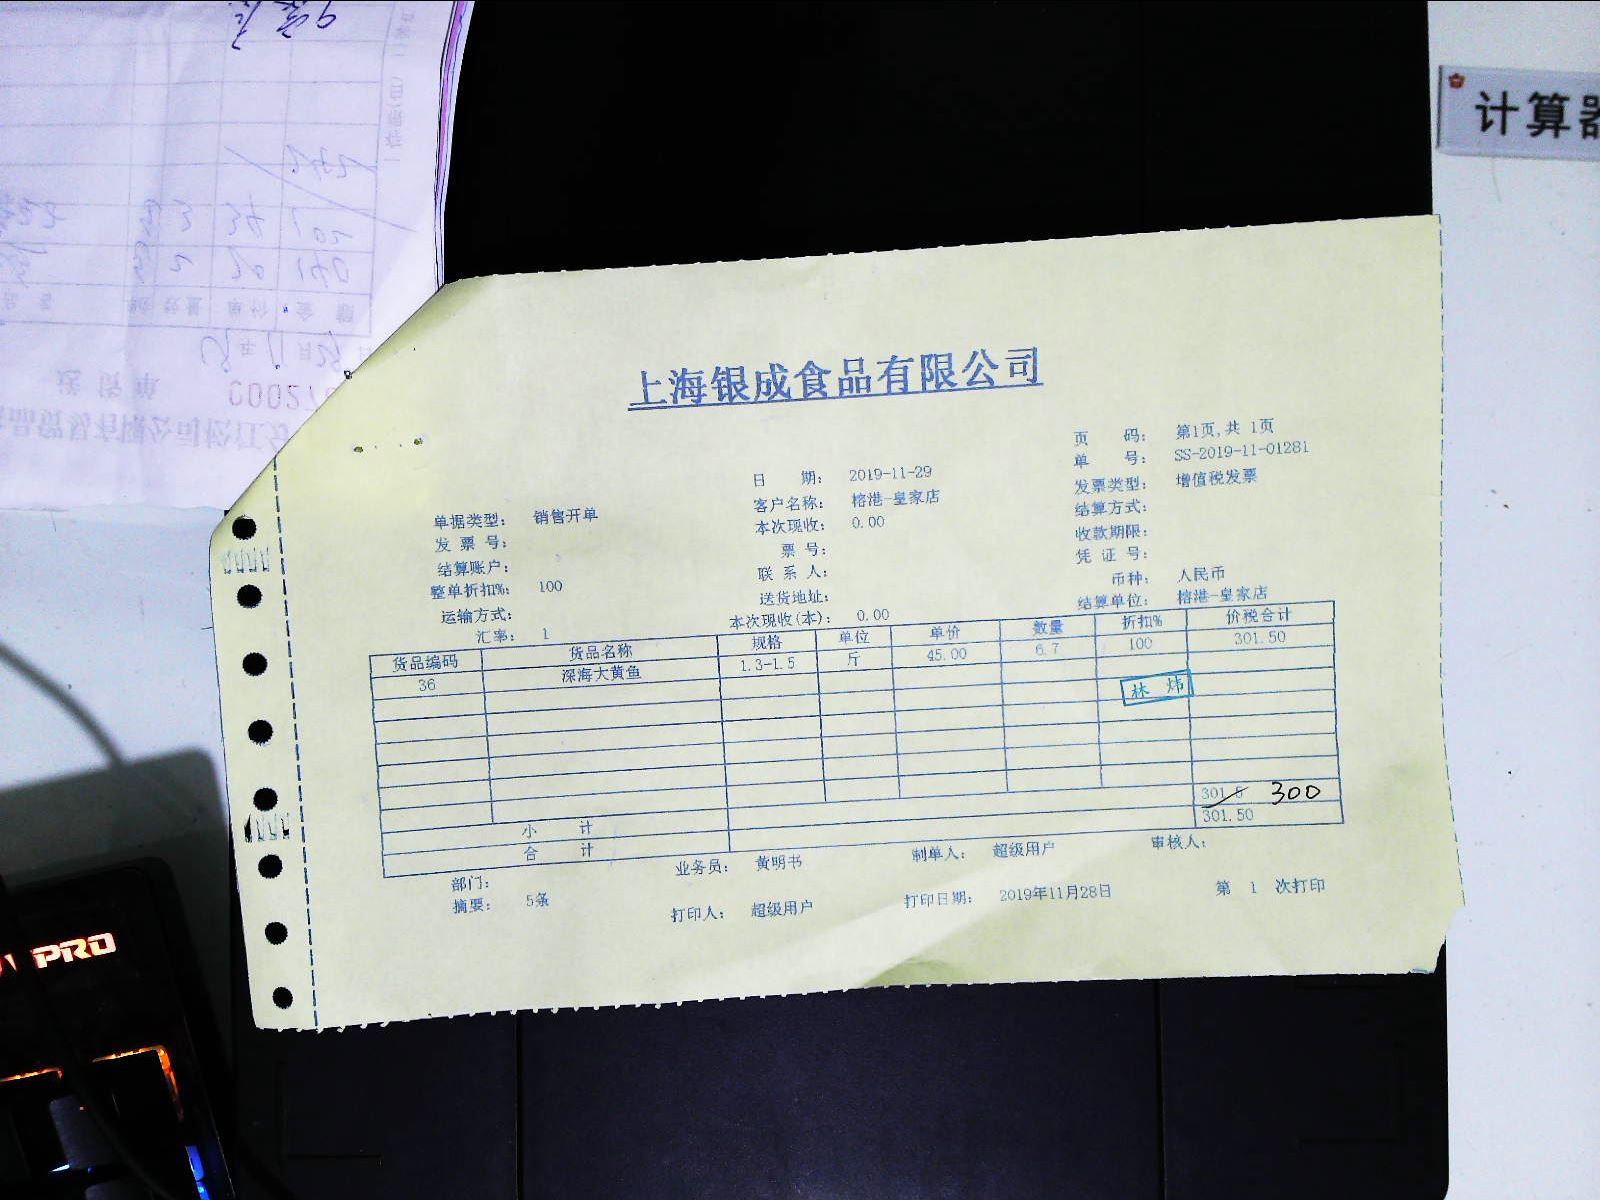 计算器
上海银成食品有限公司
页 码: 第1页,共 1页
单 号: SS-2019-11-01281
日 期: 2019-11-29
发票类型: 增值税发票
客户名称: 榕港-皇家店
结算方式:
单据类型: 销售开单
本次现收: 0.00
收款期限:
发 票 号:
票 号:
凭 证 号:
结算账户:
联 系 人:
币种: 人民币
整单折扣%: 100
送货地址:
结算单位: 榕港-皇家店
运输方式:
本次现收(本): 0.00
汇率: 1
货品编码 货品名称 规格 单位 单价 数量 折扣% 价税合计
36 深海大黄鱼 1.3-1.5 斤 45.00 6.7 100 301.50
林 炜
小 计 301.5 300
合 计 301.50
部门: 业务员: 黄明书 制单人: 超级用户 审核人:
摘要: 5条 打印人: 超级用户 打印日期: 2019年11月28日 第 1 次打印
送 货 单
PRO